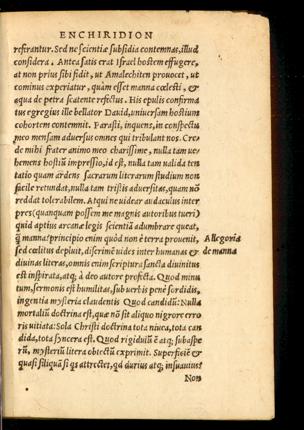 ENCHIRIDION
refrantur. Sed ne scientiæ subsidia contemnas, illud
considera. Antea satis erat Israel hostem effugere,
at non prius sibi fidit, ut Amalechiten prouocet, ut
cominus experiatur, quàm esset manna cœlesti, &
aqua de petra scatente refectus. His epulis confirma
tus egregius ille bellator Dauid, uniuersam hostium
cohortem contemnit. Parasti, inquens, in conspectu
meo mensam aduersus omnes qui tribulant nos. Cre
de mihi frater animo meo charissime, nulla tam ue-
hemens hostiũ impressio, id est, nulla tam ualida ten
tatio quam ardens sacrarum literarum studium non
facile retundat, nulla tam tristis aduersitas, quam nõ
reddat tolerabilem. Atqui ne uidear audaculus inter
pres (quanquam possem me magnis autoribus tueri)
quid aptius arcanæ legis scientiã adumbrare queat,
q̃ manna? principio enim quòd non è terra prouenit,
sed cœlitus depluit, discrimẽ uides inter humanas &
diuinas literas, omnis enim scriptura sancta diuinitus
est inspirata, atq; à deo autore profecta. Quod minu
tum, sermonis est humilitas, sub uerbis penè sordidis,
ingentia mysteria claudentis. Quod candidũ: Nulla
mortaliũ doctrina est, quæ nõ sit aliquo nigrore erro
ris uitiata: Sola Christi doctrina tota niuea, tota can
dida, tota syncera est. Quod rigidulũ & atq; subaspe
rũ, mysteriũ litera obtectũ exprimit. Superficiẽ &
quasi siliquã si qs attrectet, qd durius atq; insuauius?
Non
Allegoria
de manna